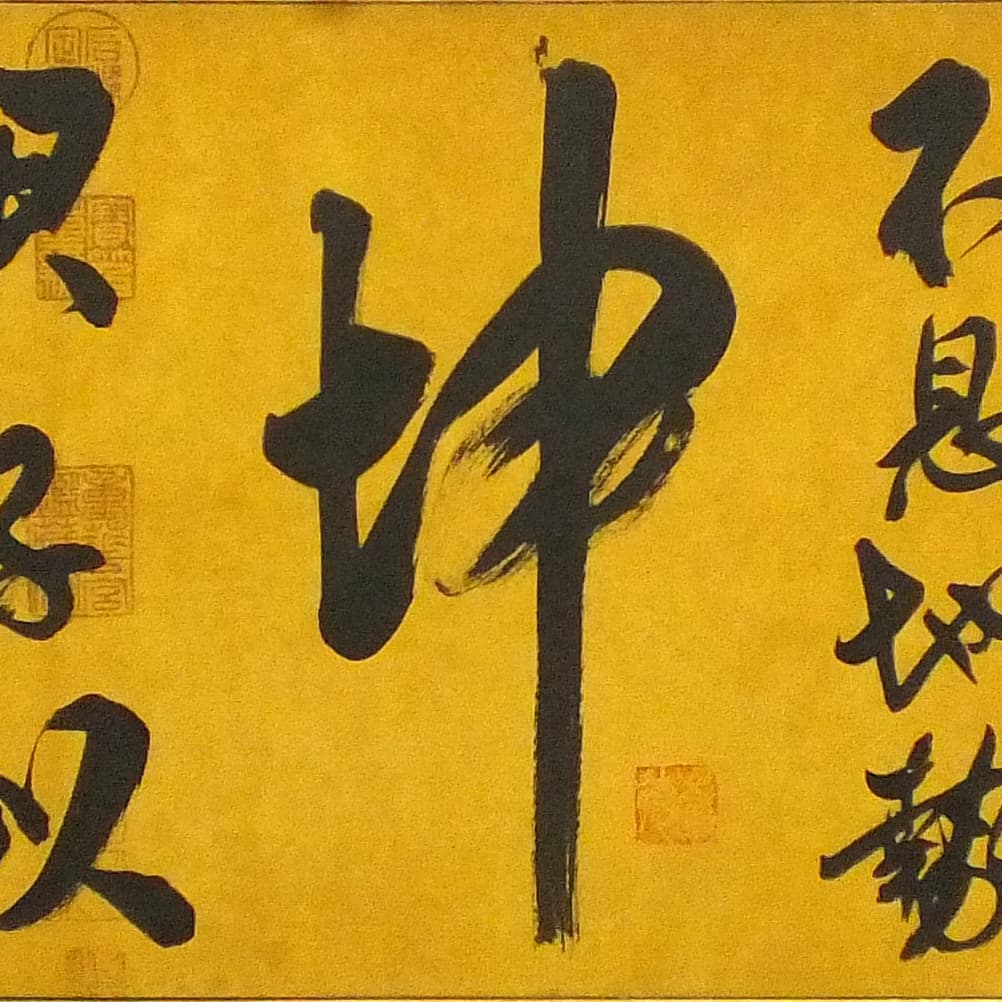 不息地勢
坤
君子以